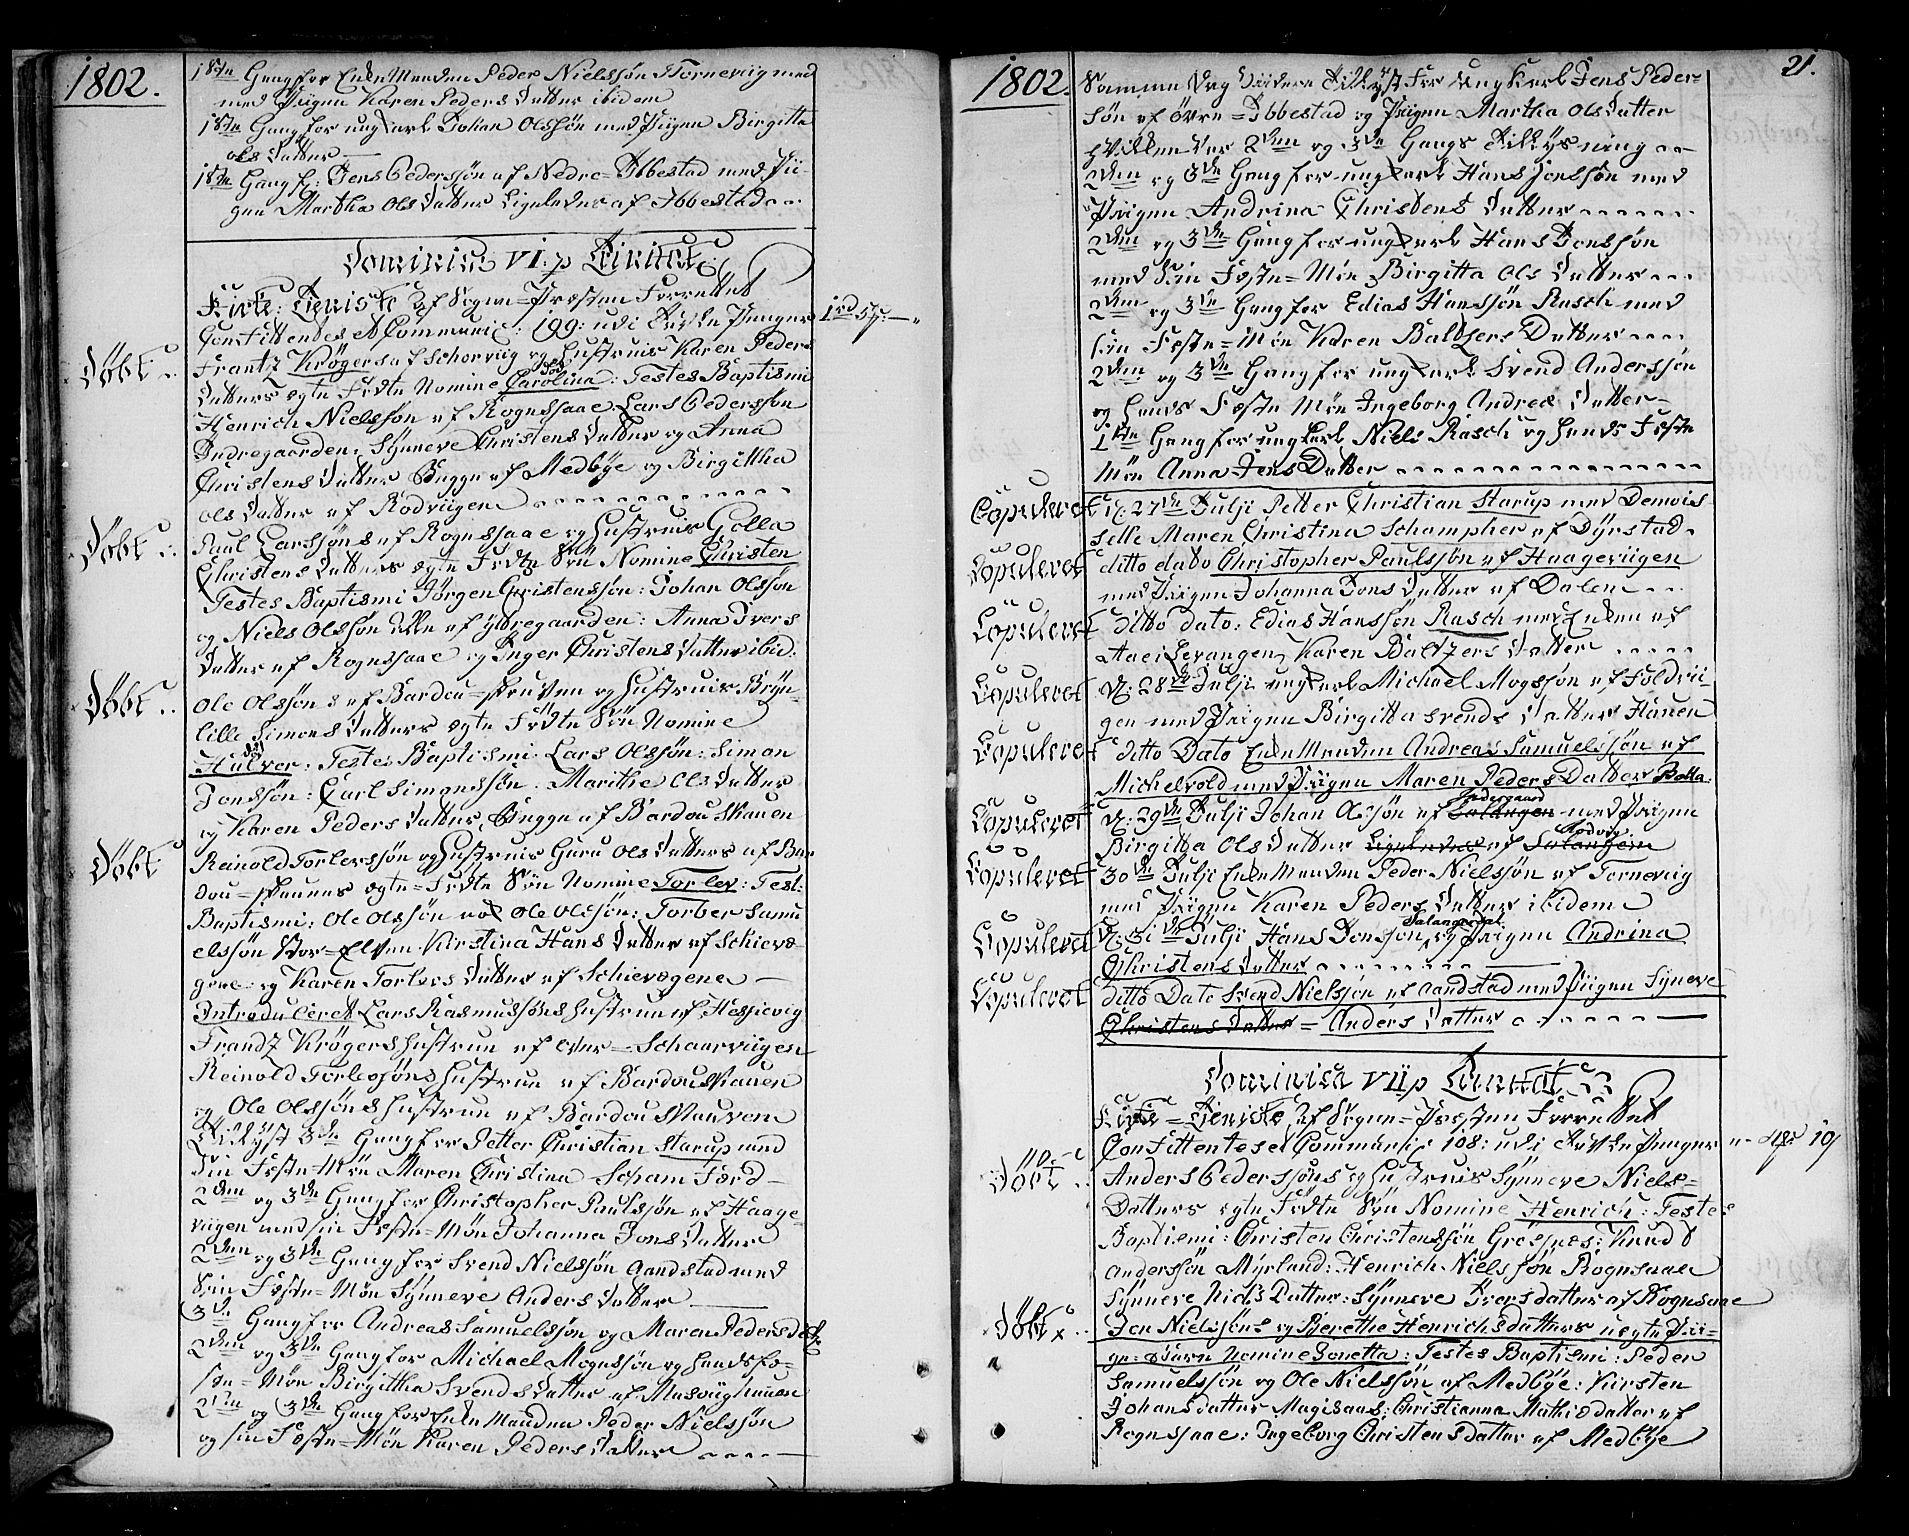 1802.
1ste Gang for EnkeManden Peder Nielssøn Torneviig med
med Piigen Karen Peders Datter ibidem
1ste Gang for ungkarl Johan Olssøn med Piigen Birgitta
ols Datter
1ste Gang f: Jens Pederssøn af Nedre=Ibbestad med Pii-
gen Martha Ols Datter Ligeledes af Ibbestad
Dominica VI: p Trinitat:
Kirke: Tieniste af Sogne=Præsten Forrettet
Confitentes et Communic: 199: udi Tavle Penger 1rd 5
Døbt Frantz Krøgers af Schorviig og Hustrues Karen Peders
Datters ægte Fødte Nomine Carolina: Testes Baptismi
død
Henrich Nielssøn af Rognssaae: Lars Pederssøn
Indregaarden: Synneve Christens Datter og Anna
Christens Datter Begge af Medbye og Birgittha
ols Datter af Rodviigen
Døbt Paul Larssøns af Rognssaae og Hustrues Golla
Christens Datters ægte Fødte Søn Nomine Christen
Testes Baptismi Jørgen Christenssøn: Johan Olssøn
og Niels Olssøn alle af ydregaarden: Anna Ivers
Datter af Rognssaae og Inger Christens Datter ibid:
Døbt Ole Olssøns af Bardou= og Hustrues Bryn-
lille Simons Datters ægte Fødte Søn Nomine
død
Halver: Testes Baptismi: Lars Olssøn: Simon
Jonssøn: Carl Simonssøn: Marithe Ols Datter
og Karen Peders Datter, Begge af Bardou Skauen
Døbt Reinold Torlerssøn og Hustrues Guru Ols Datters af Bar
dou=skauens ægte=Fødte Søn Nomine Torlev: Test:
Baptismi: Ole Olssøn og Ole Olssøn: Torber Samu
elssøn Stor=Elven Kirstina Hans Datter af Schievæ-
gene: og Karen Torlers Datter af Schievægene
Introduleret Lars Rasmussøns Hustrue af Hessievig
Frandz Krøgers Hustrue af over=Schaarviigen
Reinold Torlessøns Hustrue af Bardou Skauen
og Ole Olssøns Hustrue af Bardou Skauven
Tillyst 3die Gang for Petter Christian Starup med
sin Feste=Møe Maren Christina Scham Færd
2den og 3die Gang for Christopher Paulssøn af Haage-
viigen med sin Feste=Møe Johanna Jons Datter
2den og 3die Gang for Svend Nielssøn Aandstad med
Sin Feste=Møe Synneve Anders Datter
3die Gang for Andreas Samuelssøn og Maren Peders Datter
2den og 3die Gang for Michael Mognssøn og hands Fæ-
ste=Møe Birgittha Svends Datter af
2den og 3die Gang for Enke Manden Peder Nielssøn
og sin Feste=Møe Karen Peders Datter
1802.
21.
Samme Dag Tillyst For Ungkarl Jens Peder-
søn af Øvre=Ibbestad og Piigen Martha Ols Datter
hvilken var 2den og 3die Gangs Tillysning
2den og 3die Gang for ungkarl Hans Jonssøn med
Piigen Andrina Christens Datter
2den og 3die Gang for ungkarl Hans Jonssøn
med sin Feste=Møe Birgitta Ols Datter
2den og 3die Gang for Edias Hanssøn Rasch med
sin Feste=Møe Karen Baltzers Datter
2den og 3die Gang for ungkarl Svend Anderssøn
og hands Feste Møe Ingeborg Andreæ Datter
1ste Gang for ungkarl Niels Rasch og hands Feste
Møe Anna Jens Datter
Copuleret d: 27de Julji Petter Christian Starup med Demois-
selle Maren Christina Schampher af Dyrstad
Copuleret ditto dato Christopher Paulssøn af Haageviigen
med Piigen Johanna Jons Datter af Dalen
Copuleret ditto dato: Edias Hanssøn Rasch med Enken af
Aaei Levangen, Karen Baltzers Datter
Copuleret d: 28de Julji ungkarl Michael Mogssøn af Foldvii-
gen med Piigen Birgitta Svends Datter Hauen
Copuleret ditto Dato EnkeManden Andreas Samuelssøn af
Michelvold med Piigen Maren Peders Datter Bolla:
Copuleret d: 29de Julji Johan Olssøn af Salangen med Piigen
Indregaard
Birgitta Ols Datter Ligeledes af Salangen
Rodvig
Copuleret 30de Julji EnkeManden Peder Nielssøn af Torneviig
med Piigen Karen Peders Datter ibidem
Copuleret d: 31de Julji Hans Jonssøn og Piigen Andrina
Salangerdal
Christens Datter
Copuleret ditto Dato Svend Nielssøn af Aandstad med Piigen Syneve
Christens Datter = Anders Datter
Dominica VII p Trinitat:
Kirke=Tieniste af Sogne=Præsten Forrettet
Confitentes et Communic 108: udi Tavle Penger
Døbt Anders Pederssøns og Hustrues Synneve Niels=
Datters ægte Fødte Søn Nomine Henrich: Testes
Baptismi: Christen Christenssøn Grøsnæs: Knud
Anderssøn Myrland: Henrich Nielssøn Rognsaae
Synneve Niels Datter: Synneve Iversdatter af Rognsaae
Døbt Jon Nielssøns og Berethe Henrichsdatters uægte Pii-
ge=Barn Nomine Jonetta: Testes Baptismi: Peder
Samuelssøn og Ole Nielssøn af Medbye: Kirsten
Johansdatter Magisaas: Christianna Mathisdatter af
Rognssaae: Ingeborg Christensdatter af Medbye